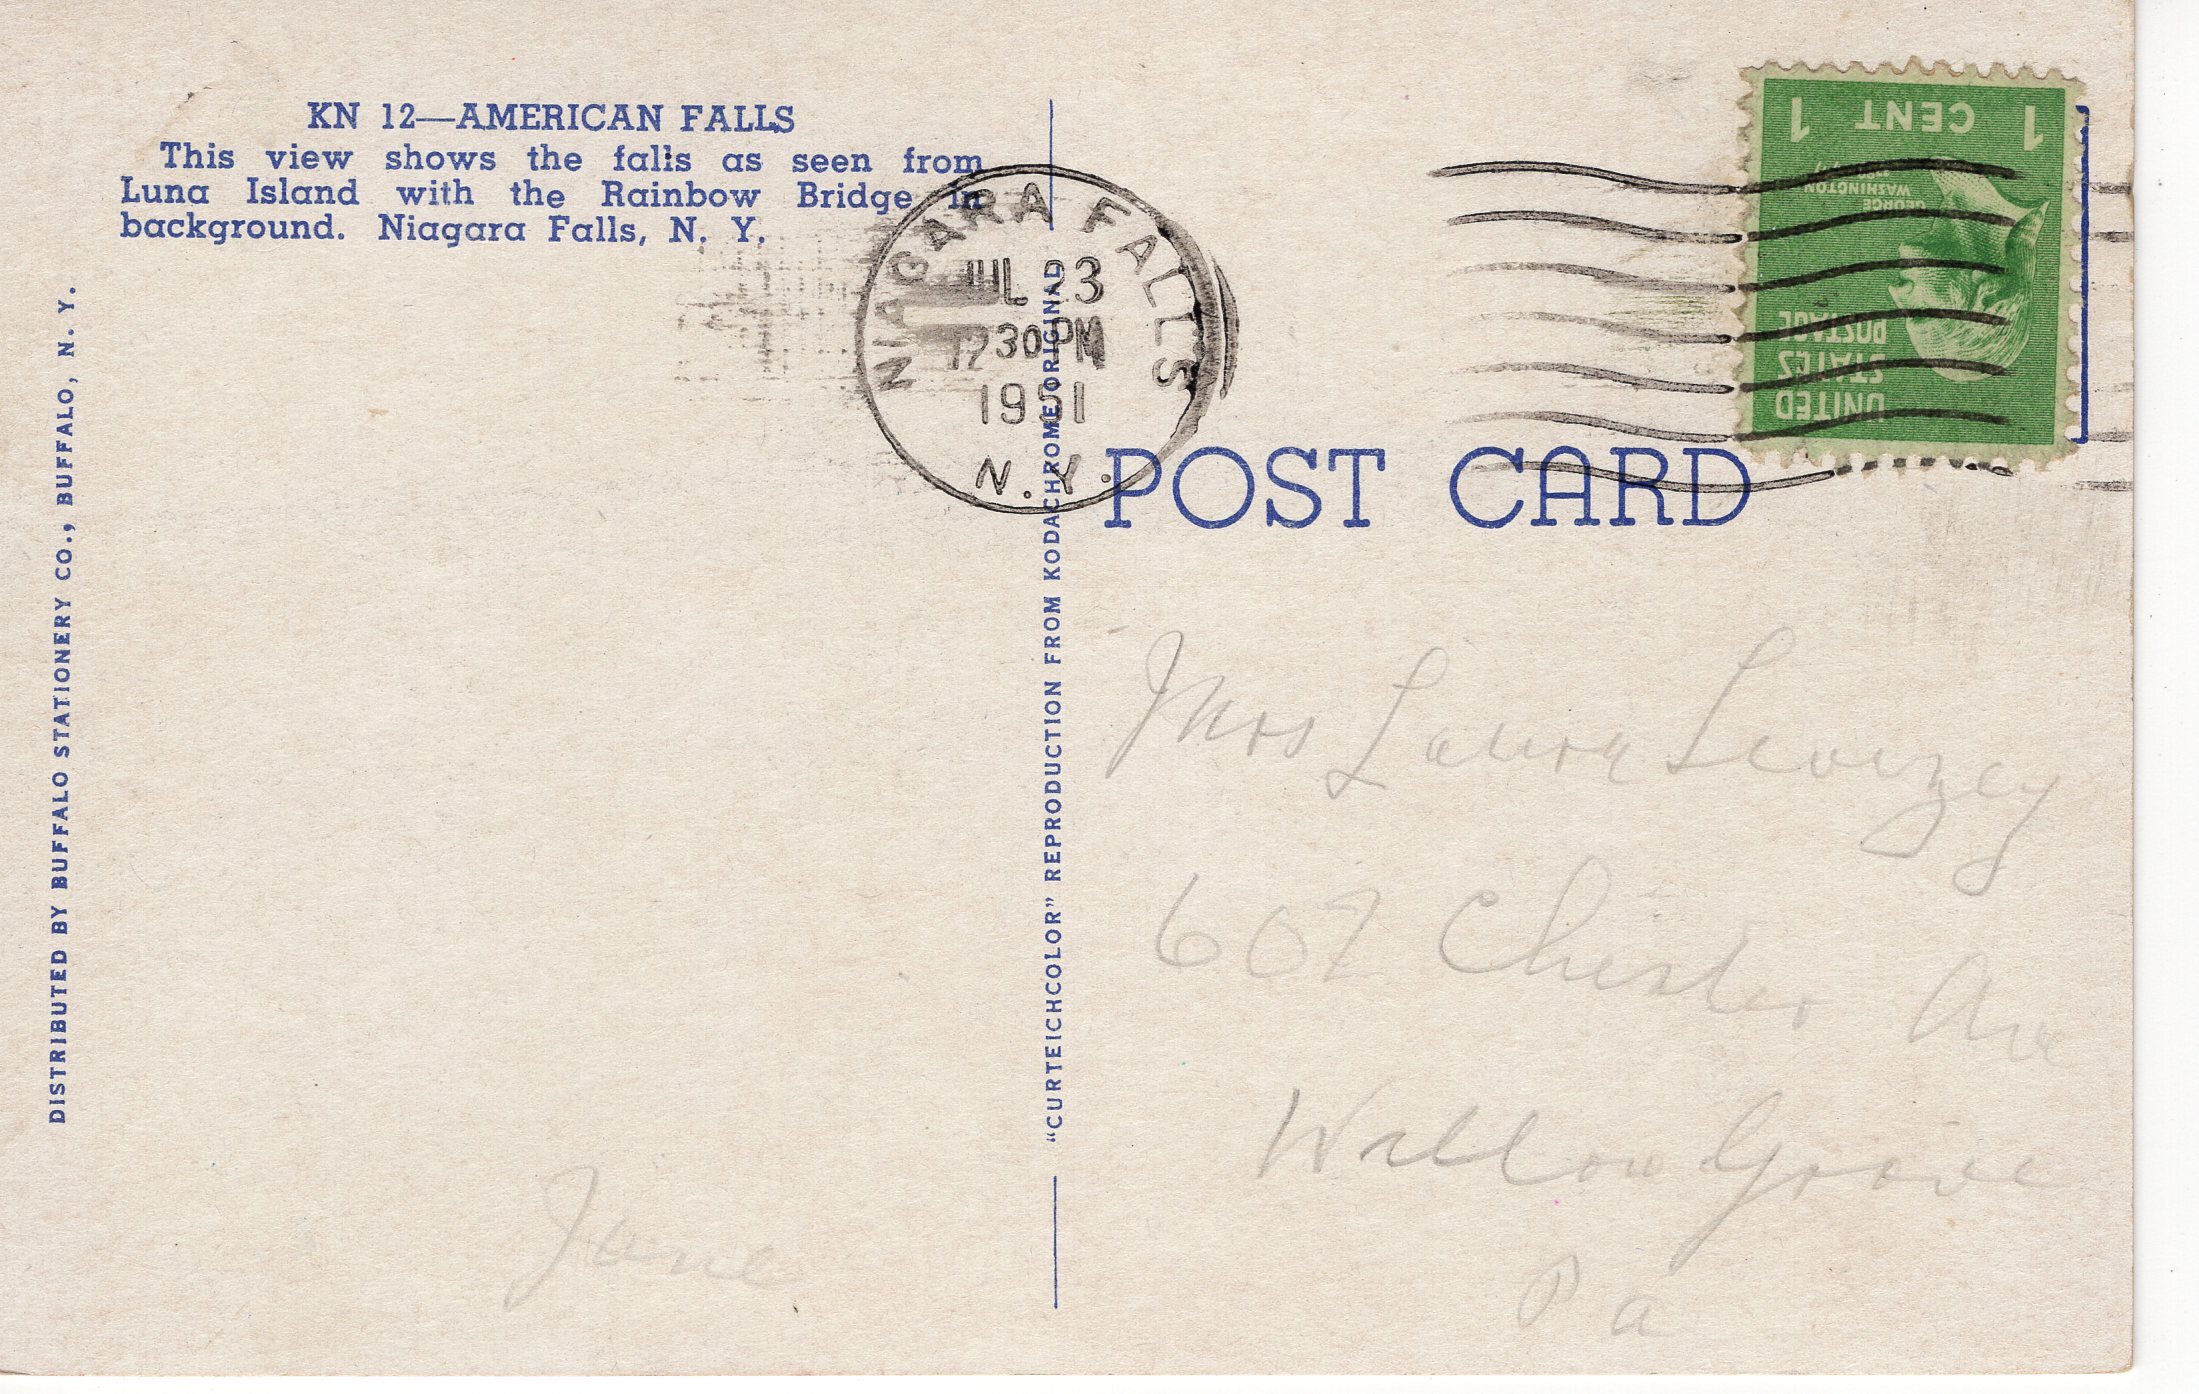 KN 12—AMERICAN FALLS
This view shows the falls as seen from
Luna Island with the Rainbow Bridge in
background. Niagara Falls, N. Y.
DISTRIBUTED BY BUFFALO STATIONERY CO., BUFFALO, N. Y.
Jane
"CURTEICHCOLOR" REPRODUCTION FROM KODACHROME ORIGINAL
NIAGARA FALLS
JUL 23
12 30 PM
1951
N.Y.
POST CARD
1 CENT 1
GEORGE
WASHINGTON
UNITED
STATES
POSTAGE
Mrs Laura
607 Chester Ave
Willow Grove
Pa